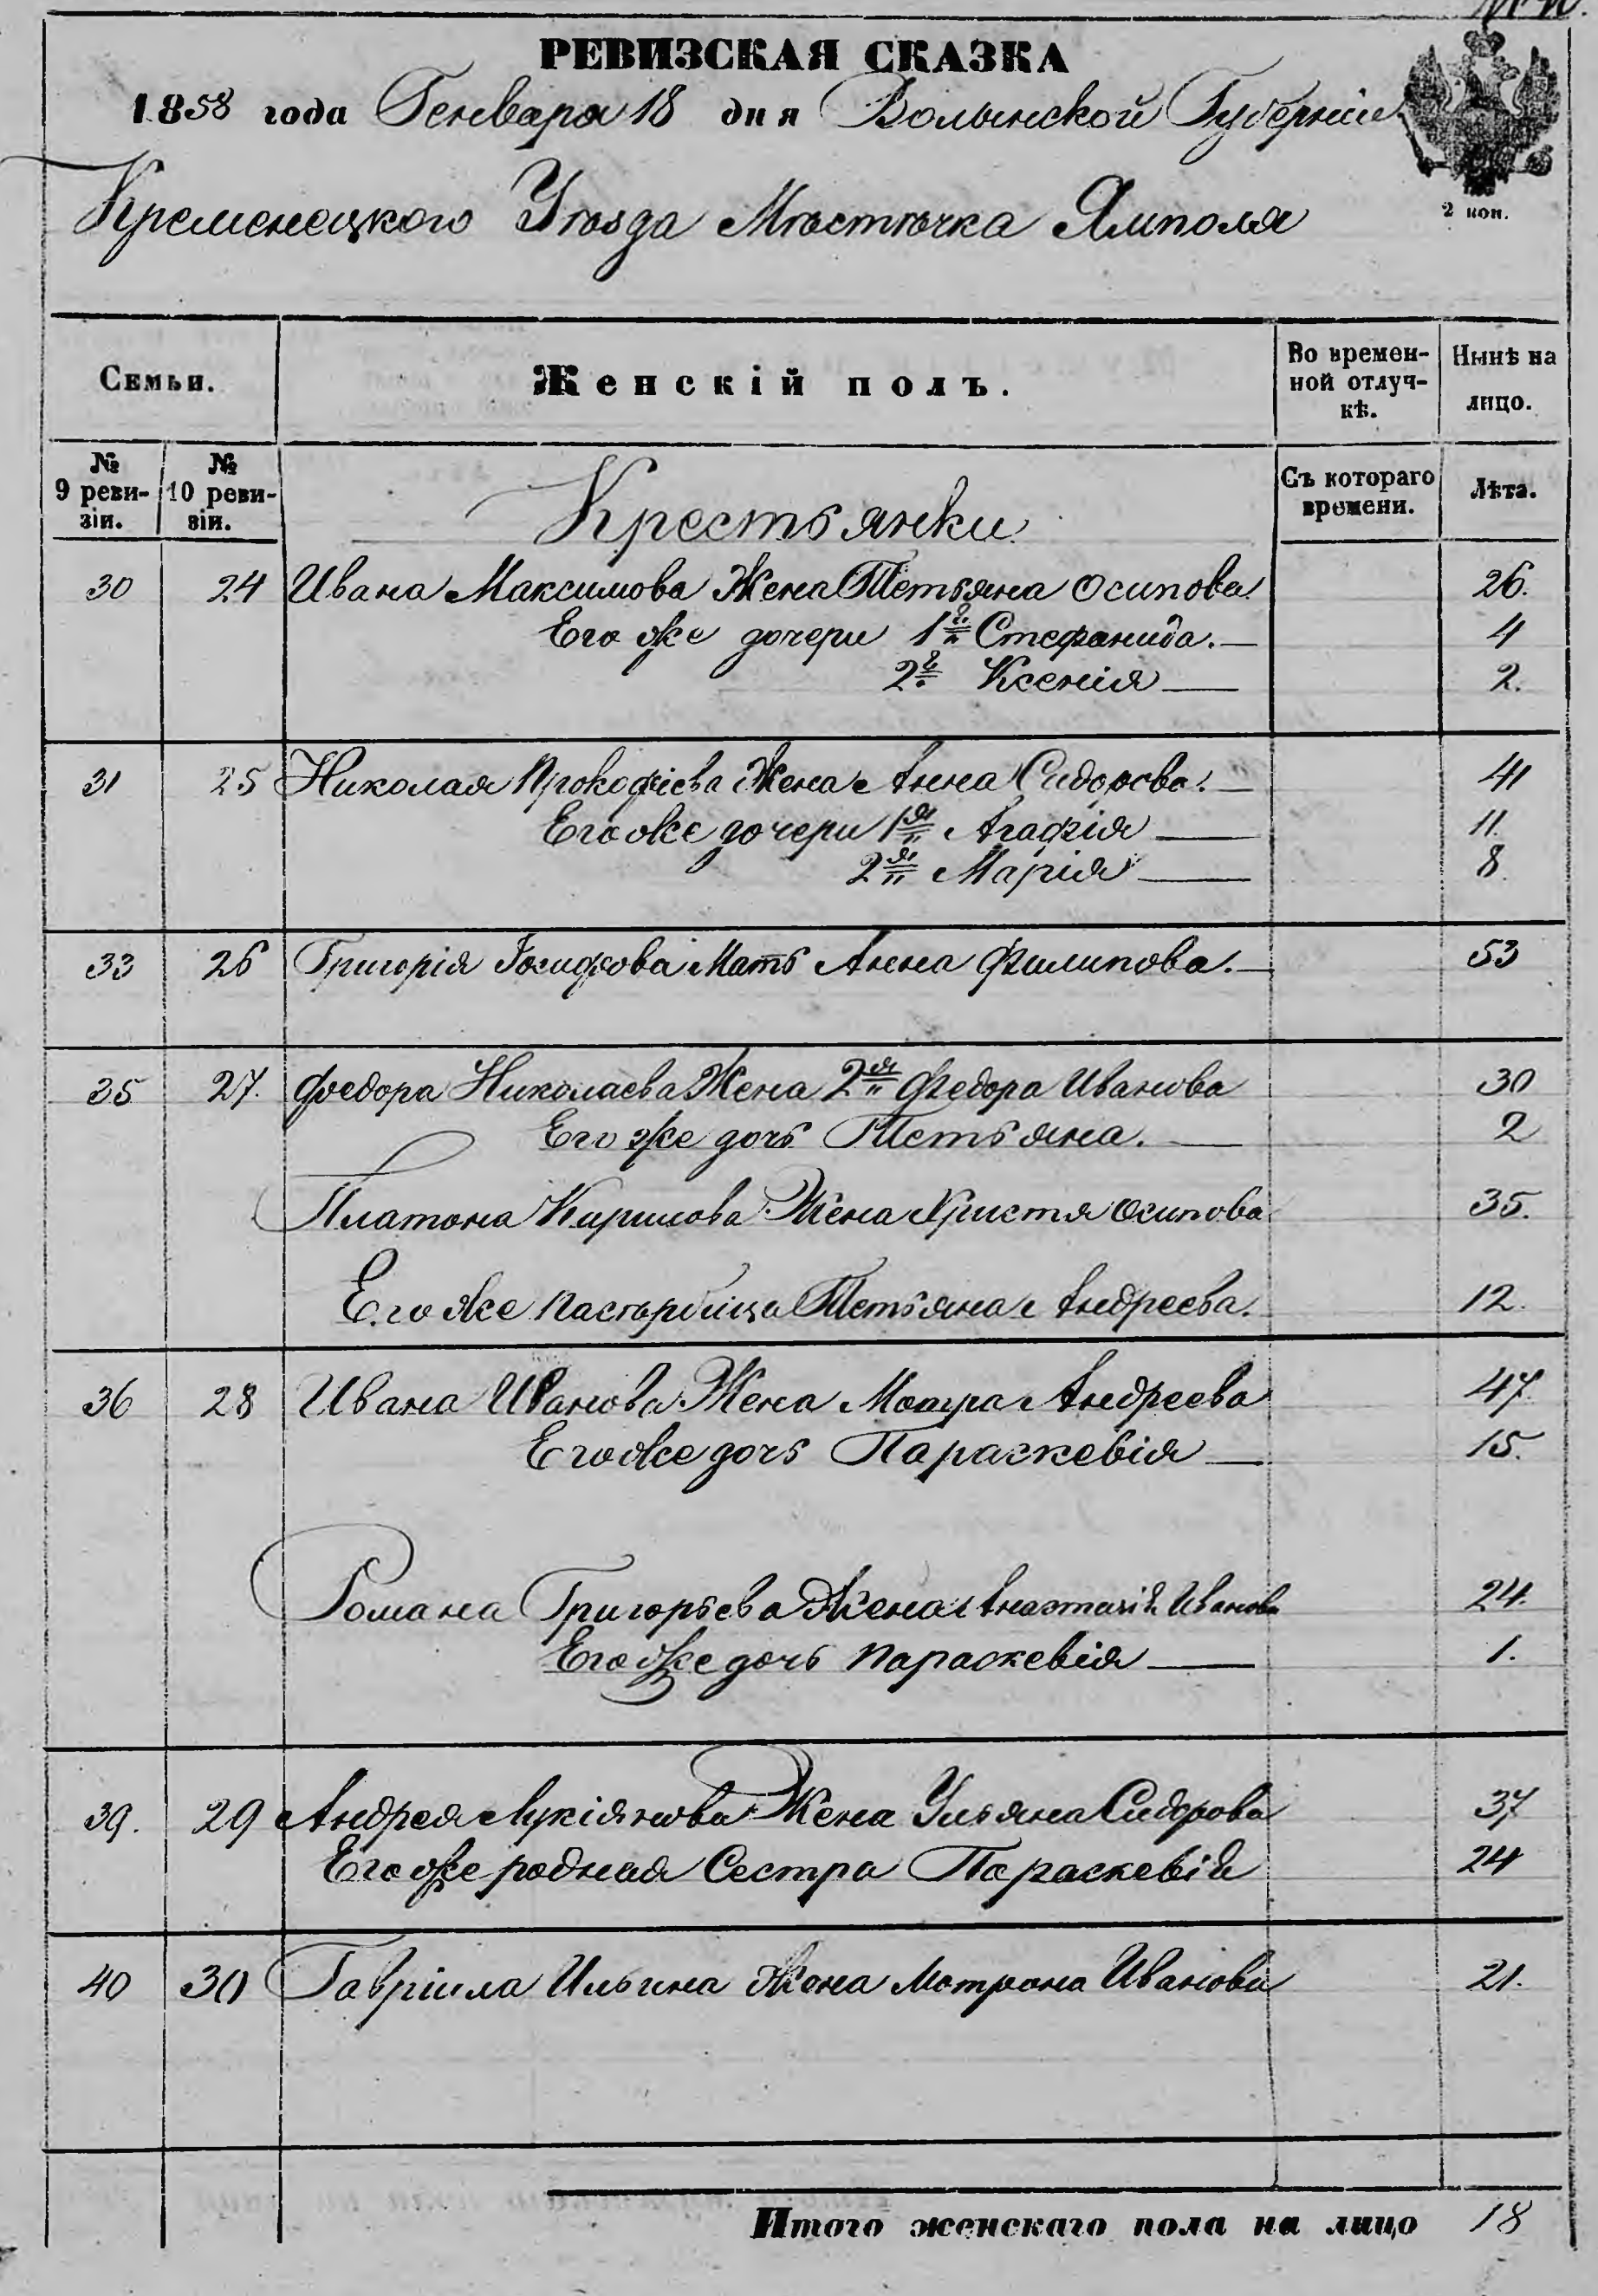 РЕВИЗСКАЯ СКАЗКА
1858 года Генваря 18 дня Волынской Губерніи
Кременецкого Уѣзда Мѣстѣчка Ямполя
2 коп.
Семьи. Женскій полъ. Во времен- Нынѣ на
ной отлуч- лицо.
кѣ.
№ № Съ котораго Лѣта.
9 реви- 10 реви- времени.
зіи. зіи.
Крестьянки
30 24 Ивана Максимова Жена Тетьяна Осипова 26.
Его же дочери 1я Стефанида. 4
2я Ксенія 2.
31 25 Николая Прокофіева Жена Анна Сидорова. 41
Его же дочери 1я Агафія 11.
2я Марія 8.
33 26 Григорія Іосифова Мать Анна Филипова. 53
35 27. Федора Николаева Жена 2я Федора Иванова 30
Его же дочь Тетьяна. 2
Платона Кирилова Жена Христя Осипова 35.
Его же Тетьяна Андреева. 12.
36 28 Ивана Иванова Жена Андреева 47.
Его же дочь Параскевія 15.
Романа Григорьева Жена Анастасія Иванова 24.
Его же дочь Параскевія 1.
39. 29 Андрея Лукіянова Жена Ульяна Сидорова 37
Его же родная Сестра Параскевія 24
40 30 Гавріила Ильина Жена Мотрона Иванова 21.
Итого женскаго пола на лицо 18